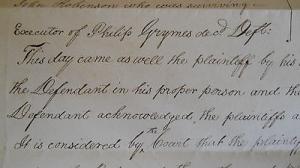 John Robinson who was surviving
Executor of Philip Grymes decd Deft:
This day came as well the plaintiff by his
the Defendant in his proper person and th
Defendant acknowledged, the plaintiffs a
It is considered by the Court that the plaintif